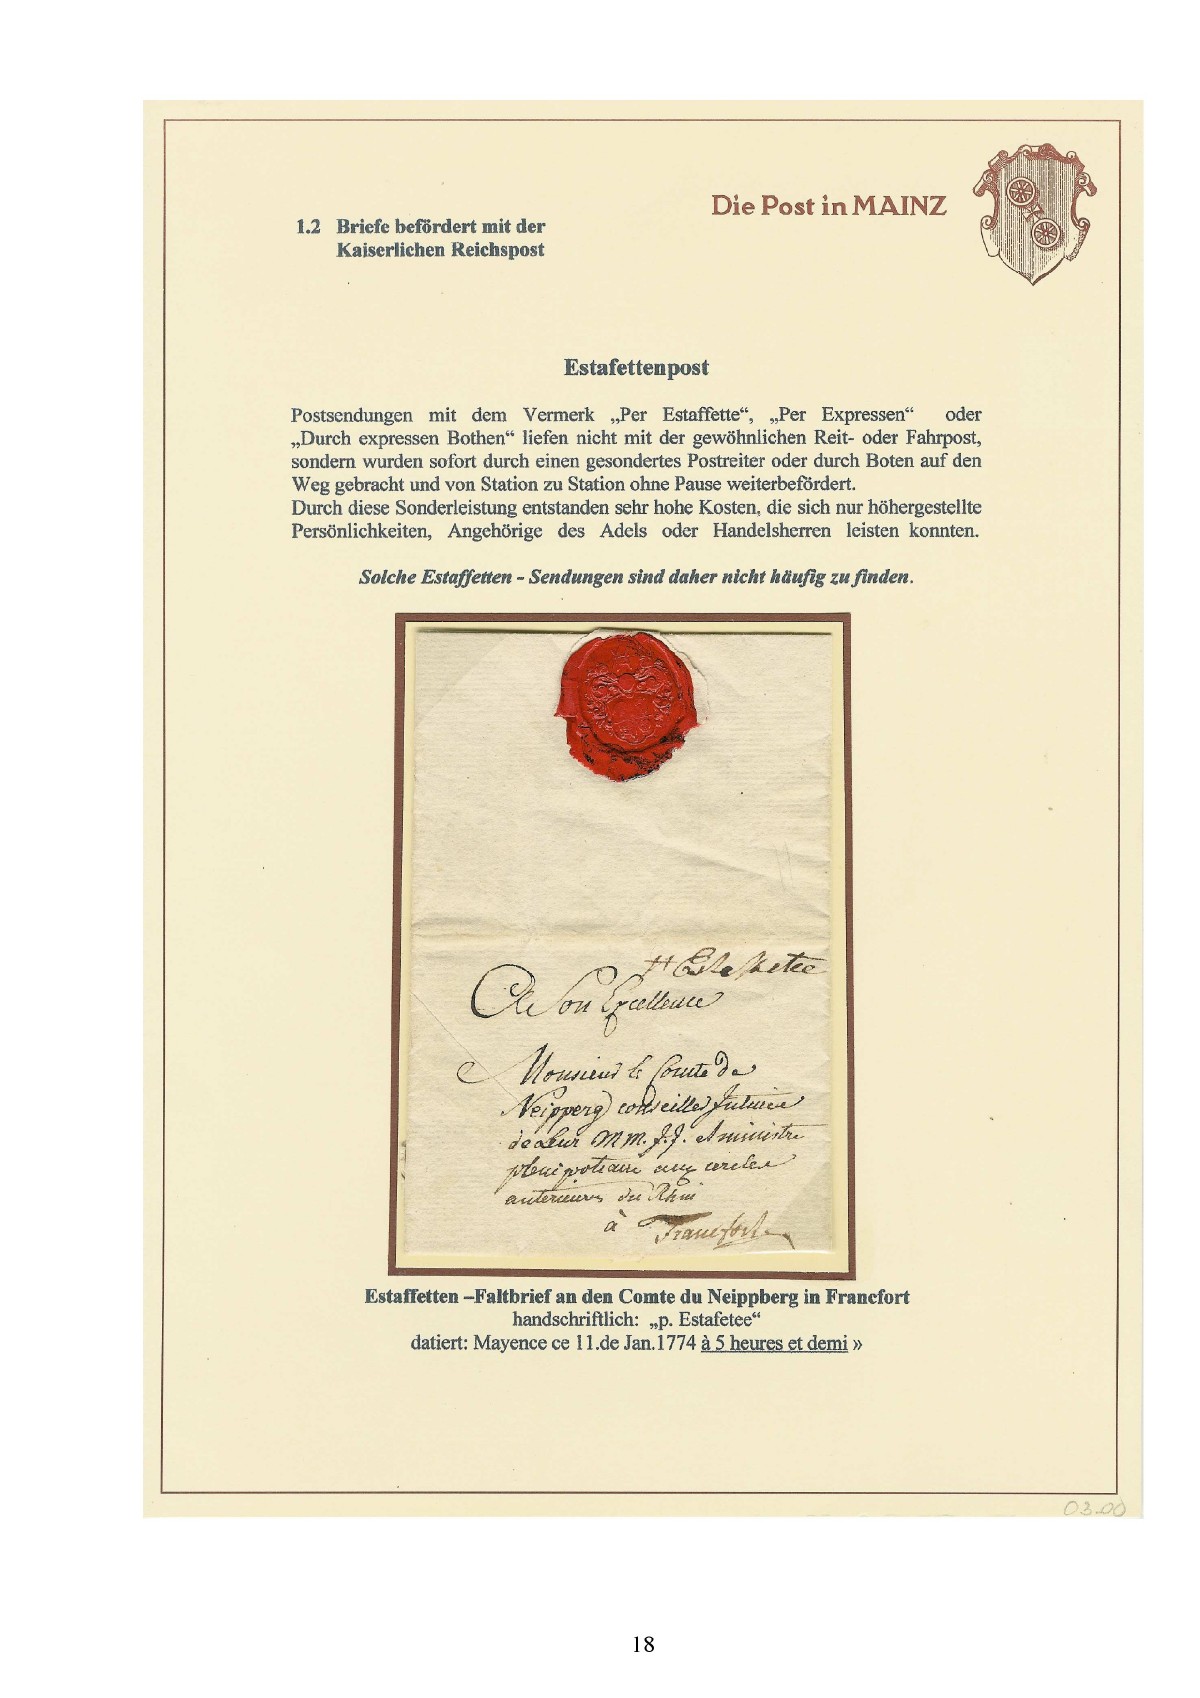 Die Post in MAINZ
1.2 Briefe befördert mit der
Kaiserlichen Reichspost
Estafettenpost
Postsendungen mit dem Vermerk „Per Estaffette“, „Per Expressen“ oder
„Durch expressen Bothen“ liefen nicht mit der gewöhnlichen Reit- oder Fahrpost,
sondern wurden sofort durch einen gesondertes Postreiter oder durch Boten auf den
Weg gebracht und von Station zu Station ohne Pause weiterbefördert.
Durch diese Sonderleistung entstanden sehr hohe Kosten, die sich nur höhergestellte
Persönlichkeiten, Angehörige des Adels oder Handelsherren leisten konnten.
Solche Estaffetten - Sendungen sind daher nicht häufig zu finden.
Estaffetee
A Son Excellence
Monsieur le Comte de
Neipperg conseiller Intime
de Leur MM. J.J. et ministre
plenipotiaire aux cercles
anterieures du Rhin
à Francfort
Estaffetten –Faltbrief an den Comte du Neippberg in Francfort
handschriftlich: „p. Estafetee“
datiert: Mayence ce 11.de Jan.1774 à 5 heures et demi »
03.00
18